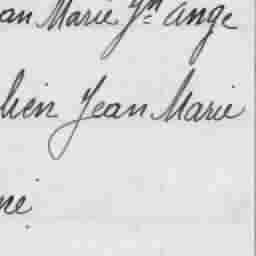 an Marie Yn Ange
lien Jean Marie
ne